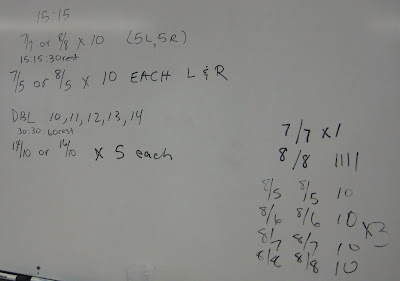 15:15
7/7 or 8/8 x 10 (5L, 5R)
15:15:30rest
7/5 or 8/5 x 10 EACH L & R
DBL 10, 11, 12, 13, 14
30:30 60rest
14/10 or 16/10 x 5 each
7/7 x 1
8/8 IIII
8/5 8/5 10
8/6 8/6 10
8/7 8/7 10
8/8 8/8 10
x3